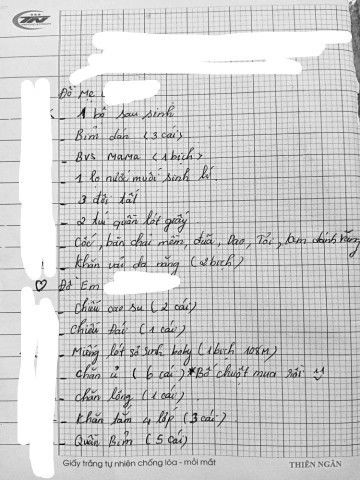 TN
Đồ Mẹ
1 bộ sau sinh
Bỉm dán (3 cái)
BVS MAMA (1 bịch)
1 lọ nước muối sinh lí
3 đôi tất
2 túi quần lót giấy
Cốc, bàn chải mềm, đũa, Dao, Tỏi, kem đánh răng
Khăn vải đa năng (2 bịch)
Đồ Em
Chiếu cao su (2 cái)
Chiếu Đái (1 cái)
Miếng lót sơ sinh boby (1 bịch 108M)
Chăn ủ (6 cái) * Bố chuột mua rồi
Chăn lông (1 cái)
Khăn tắm 4 lớp (3 cái)
Quần Bỉm (5 cái)
Giấy trắng tự nhiên chống lóa - mỏi mắt THIÊN NGÂN